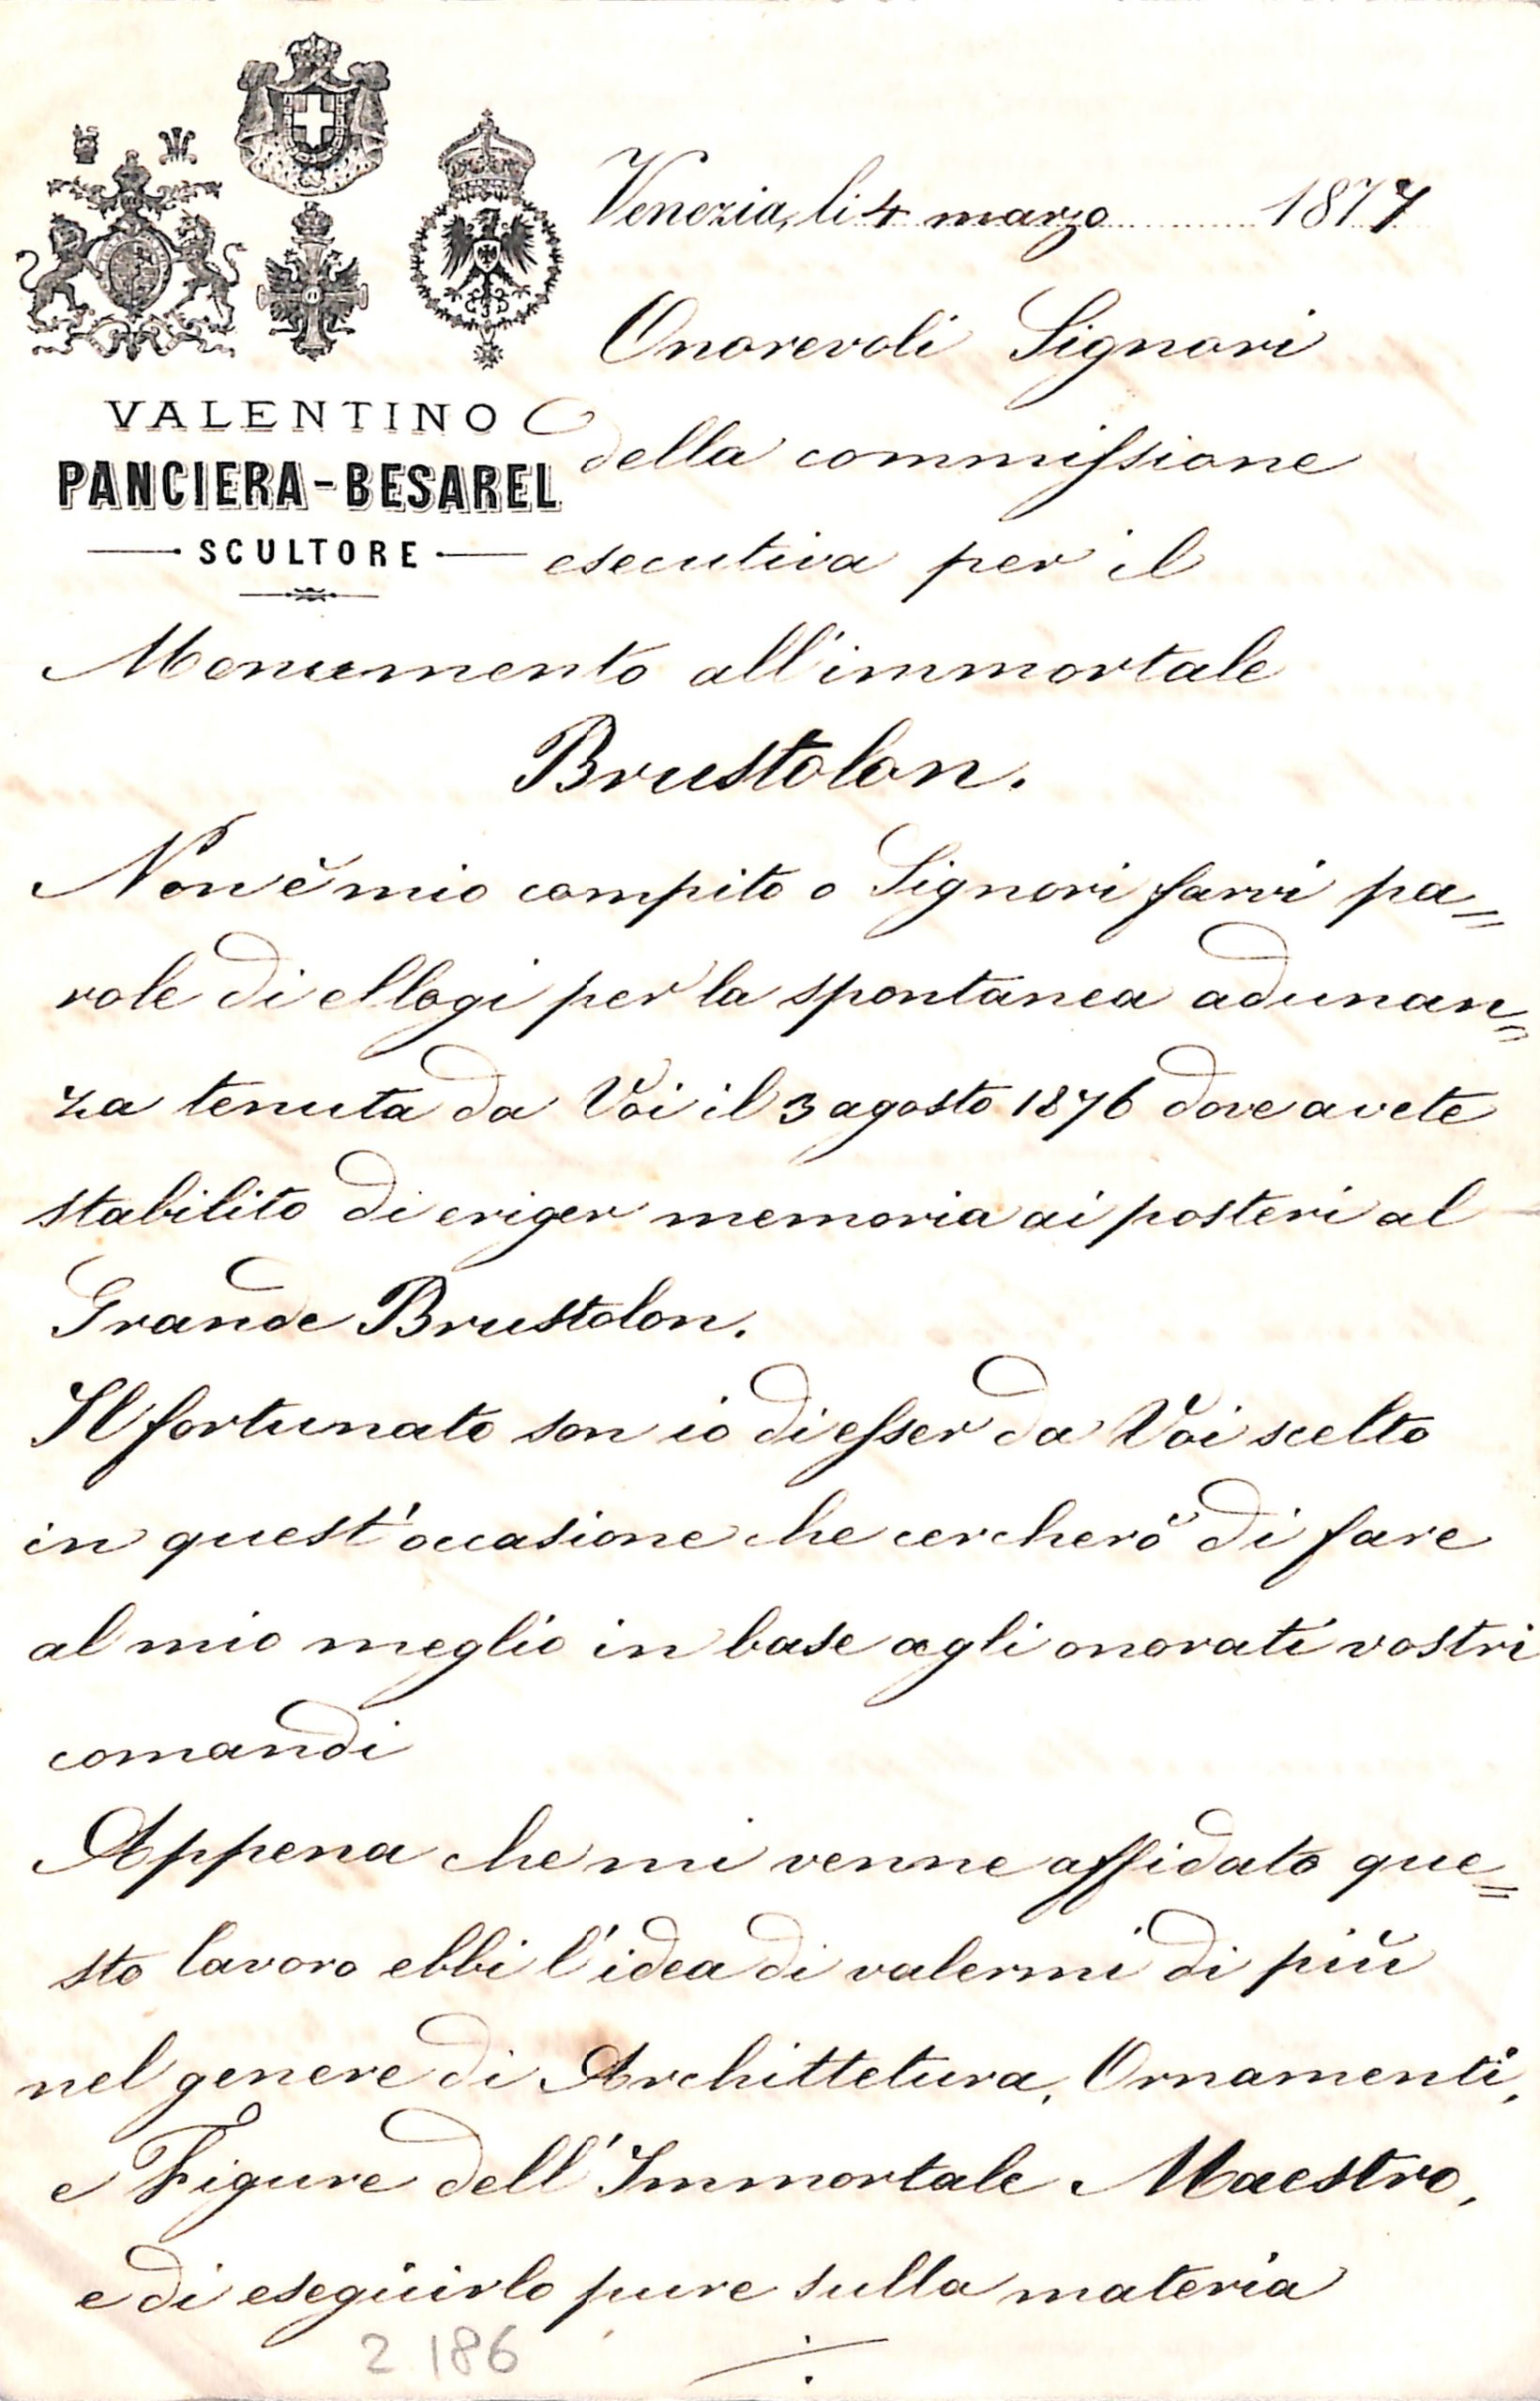 Venezia, li 4 marzo 1877
Onorevoli Signori
VALENTINO
della commissione
PANCIERA-BESAREL
SCULTORE
esecutiva per il
Monumento all'immortale
Brustolon.
Non è mio compito o Signori farvi pa=
role di ellogi per la spontanea adunan=
za tenuta da Voi il 3 agosto 1876 dove avete
stabilito di eriger memoria ai posteri al
Grande Brustolon.
Il fortunato son io di esser da Voi scelto
in quest'occasione che cercherò di fare
al mio meglio in base agli onorati vostri
comandi
Appena che mi venne affidato que=
sto lavoro ebbi l'idea di valermi di più
nel genere di Archittetura, Ornamenti,
e Figure dell'Immortale Maestro,
e di eseguirlo pure sulla materia
2186